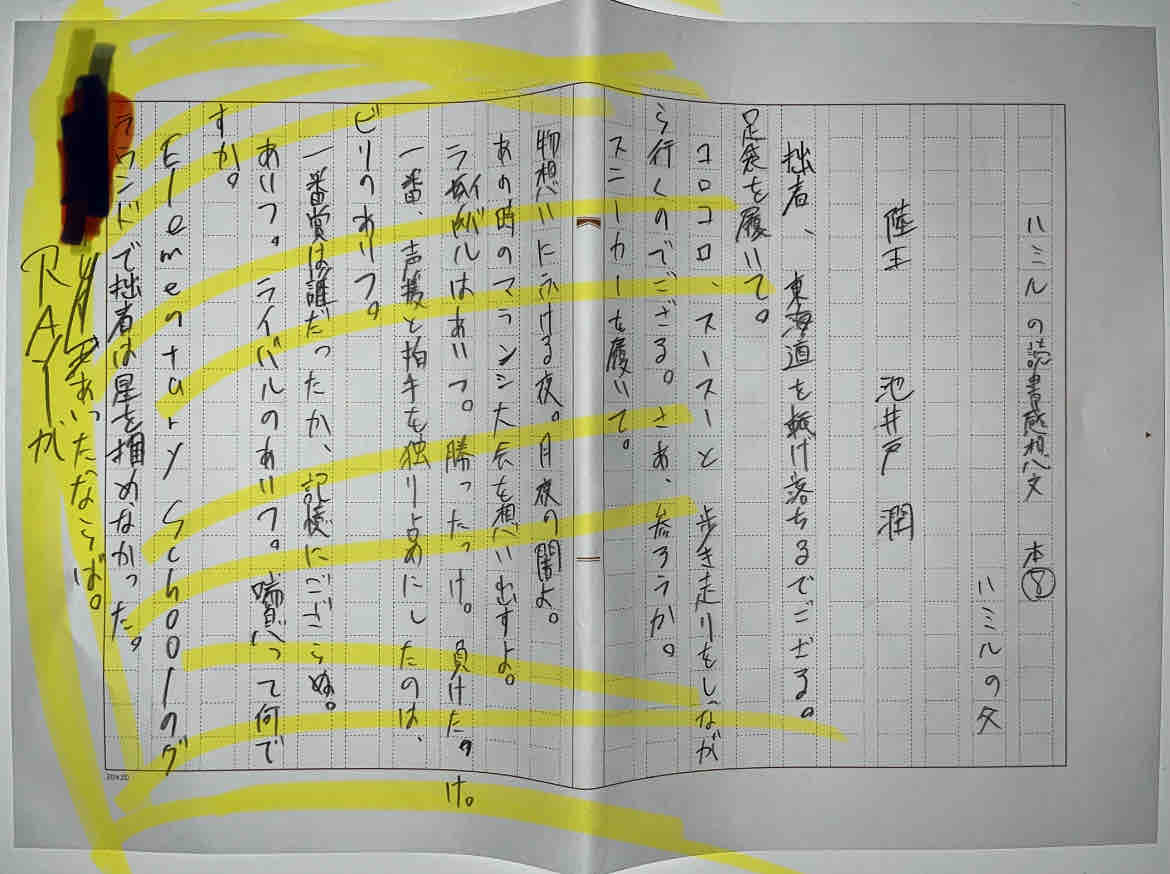 ハミルの読書感想文 本⑧
ハミルの夕
陸王 池井戸 潤
拙者、 東海道を転げ落ちるでござる。
足袋を履いて。
コロコロ、スースーと 歩き走りをしなが
ら行くのでござる。さあ、参ろうか。
スニーカーを履いて。
物想いにふける夜。月夜の闇よ。
あの時のマランシ大会を想い出すよ。
ライバルはあいつ。勝ったっけ。負けた。け。
一番、声援と拍手を独り占めにしたのは、
ビリのあいつ。
一番賞は誰だったか、記憶にござらぬ。
あいつ。ライバルのあいつ。喘息って何で
すか。
Elementary Schoolのグ
ラウンドで拙者は星を掴めなかった。
あったならば。
RAYが
20×20